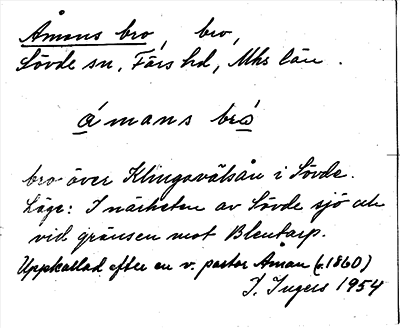 Åmans bro, bro,
Sövde sn, Färs hd, Mhs län.
åmans brå
bro över Klingavälsån i Sövde.
Läge: I närheten av Sövde sjö och
vid gränsen mot Blentarp.
Uppkallad efter en v. pastor Åman (c.1860)
I. Ingers 1954